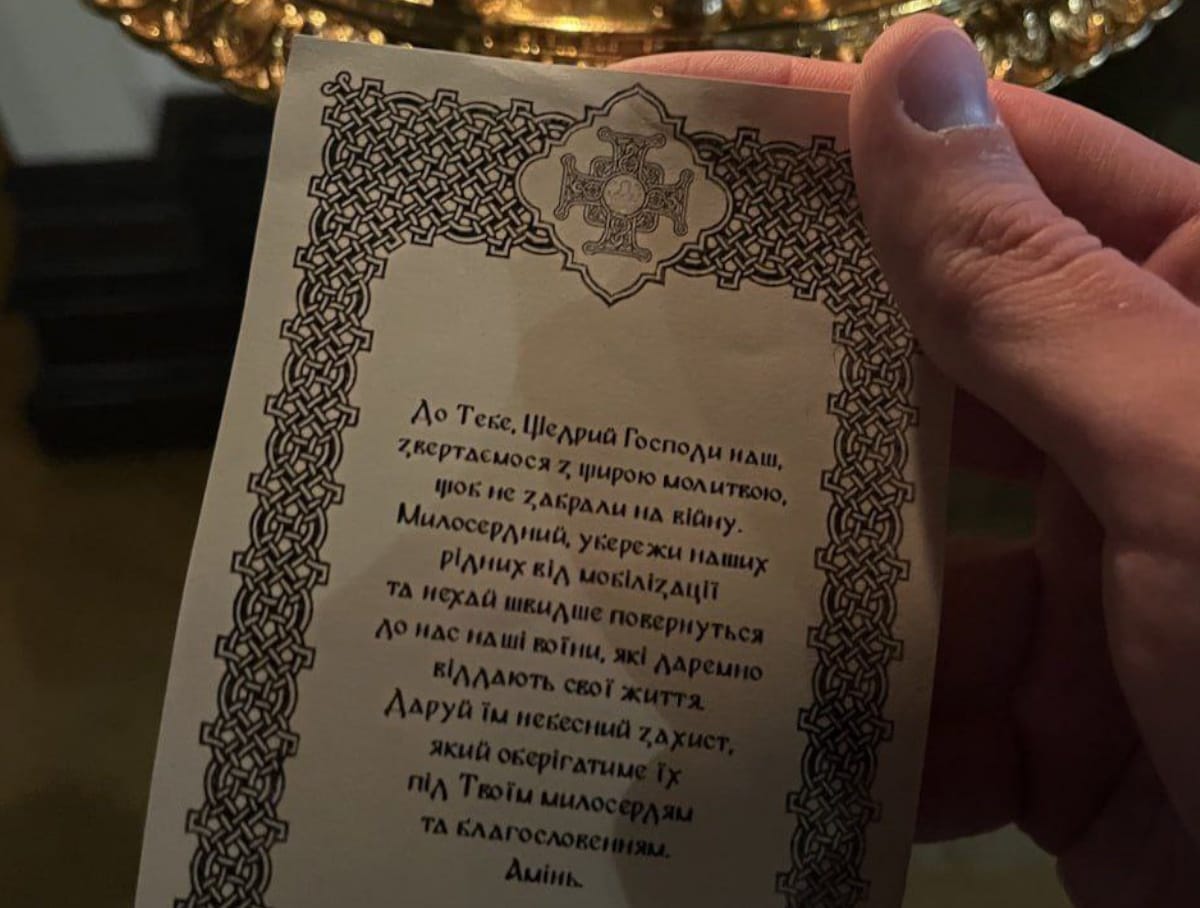 До Тебе, Щедрий Господи наш,
звертаємося з щирою молитвою,
щоб не забрали на війну.
Милосердний, убережи наших
рідних від мобілізації
та нехай швидше повернуться
до нас наші воїни, які даремно
віддають свої життя.
Даруй їм небесний захист,
який оберігатиме їх
під Твоїм милосердям
та благословенням.
Амінь.